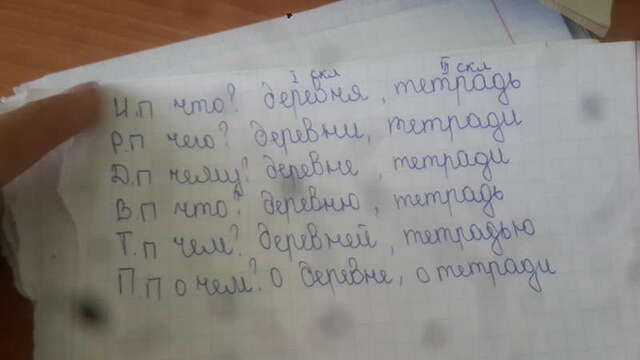 I скл II скл
И.п что? деревня, тетрадь
Р.п чего? деревни, тетради
Д.п чему? деревне, тетради
В.п что? деревню, тетрадь
Т.п чем? деревней, тетрадью
П.п о чём? о деревне, о тетради